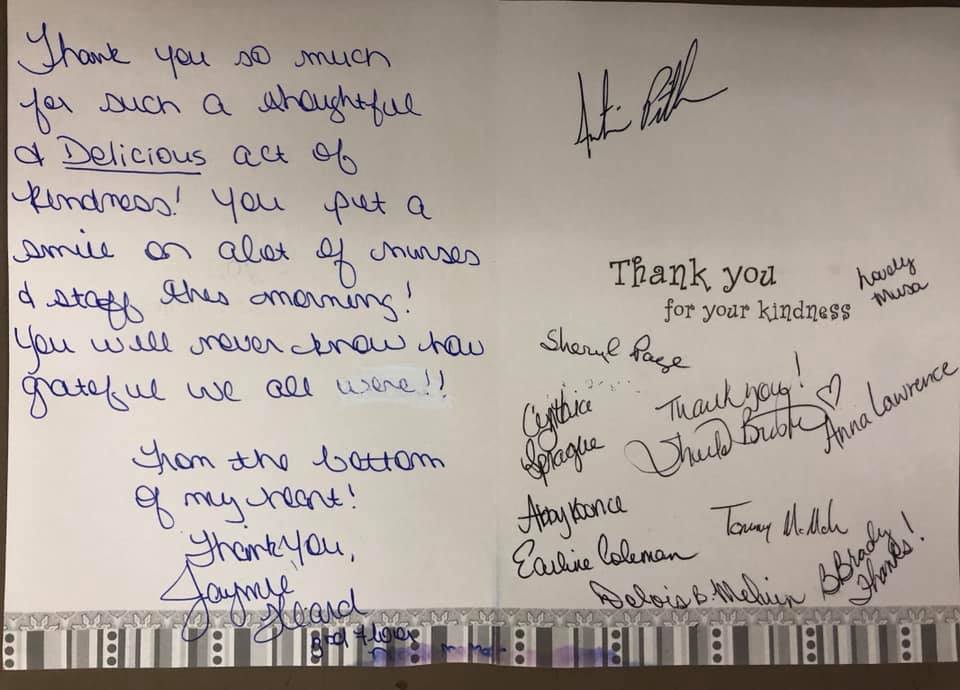 Thank you so much
for such a thoughtful
& Delicious act of
kindness! You put a
smile on alot of nurses
& staff this morning!
You will never know how
grateful we all were!!
From the bottom
of my heart!
Thank You,
Jaymie
Heard
3rd floor
Thank you
for your kindness
Lovely
Musa
Sheryl Page
Cynthia
Sprague
Thank you!
Anna Lawrence
Abby
Earline Coleman
Tommy
Delois B. Melvin
B Brady
Thanks!